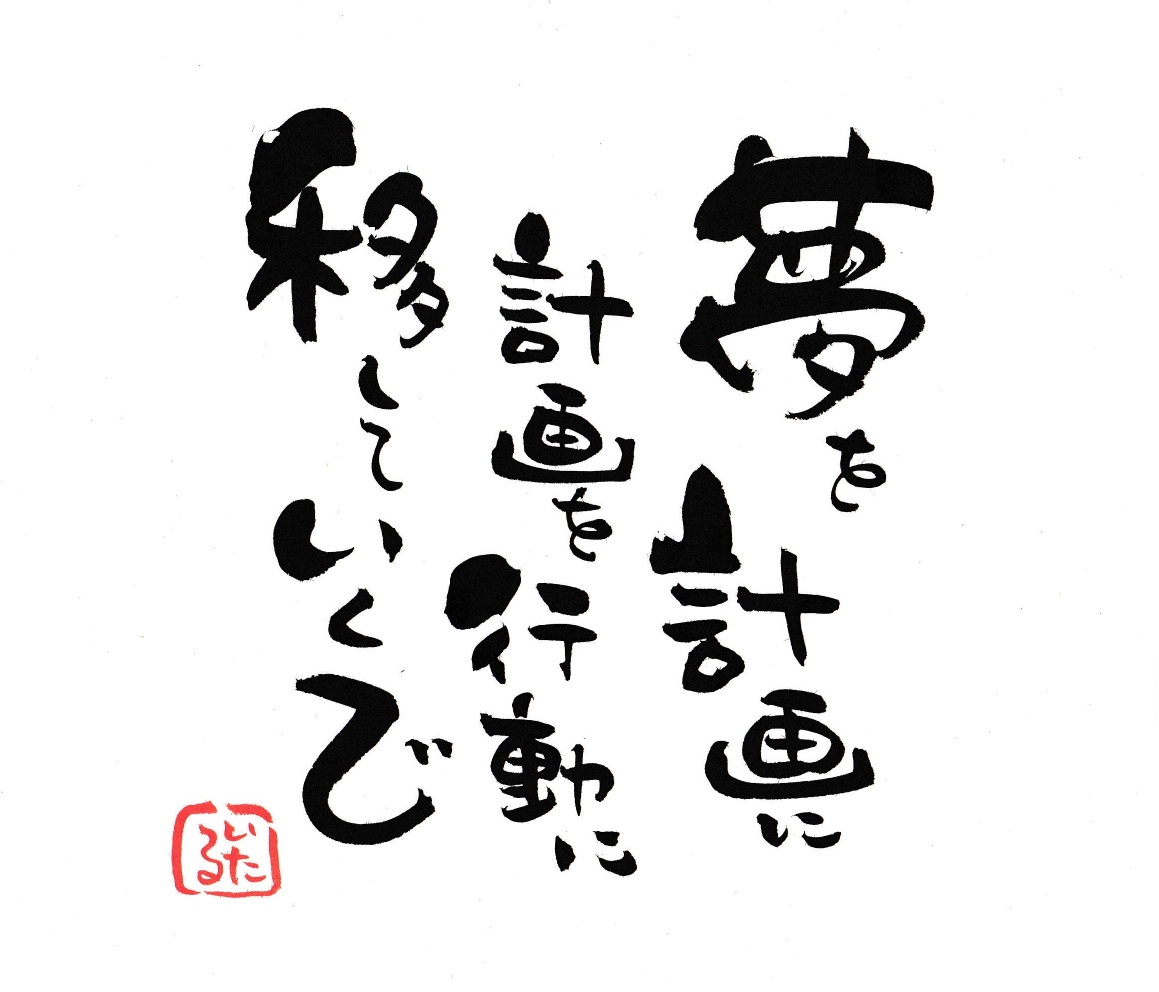 夢を計画に
計画を行動に
移していくで
いたる